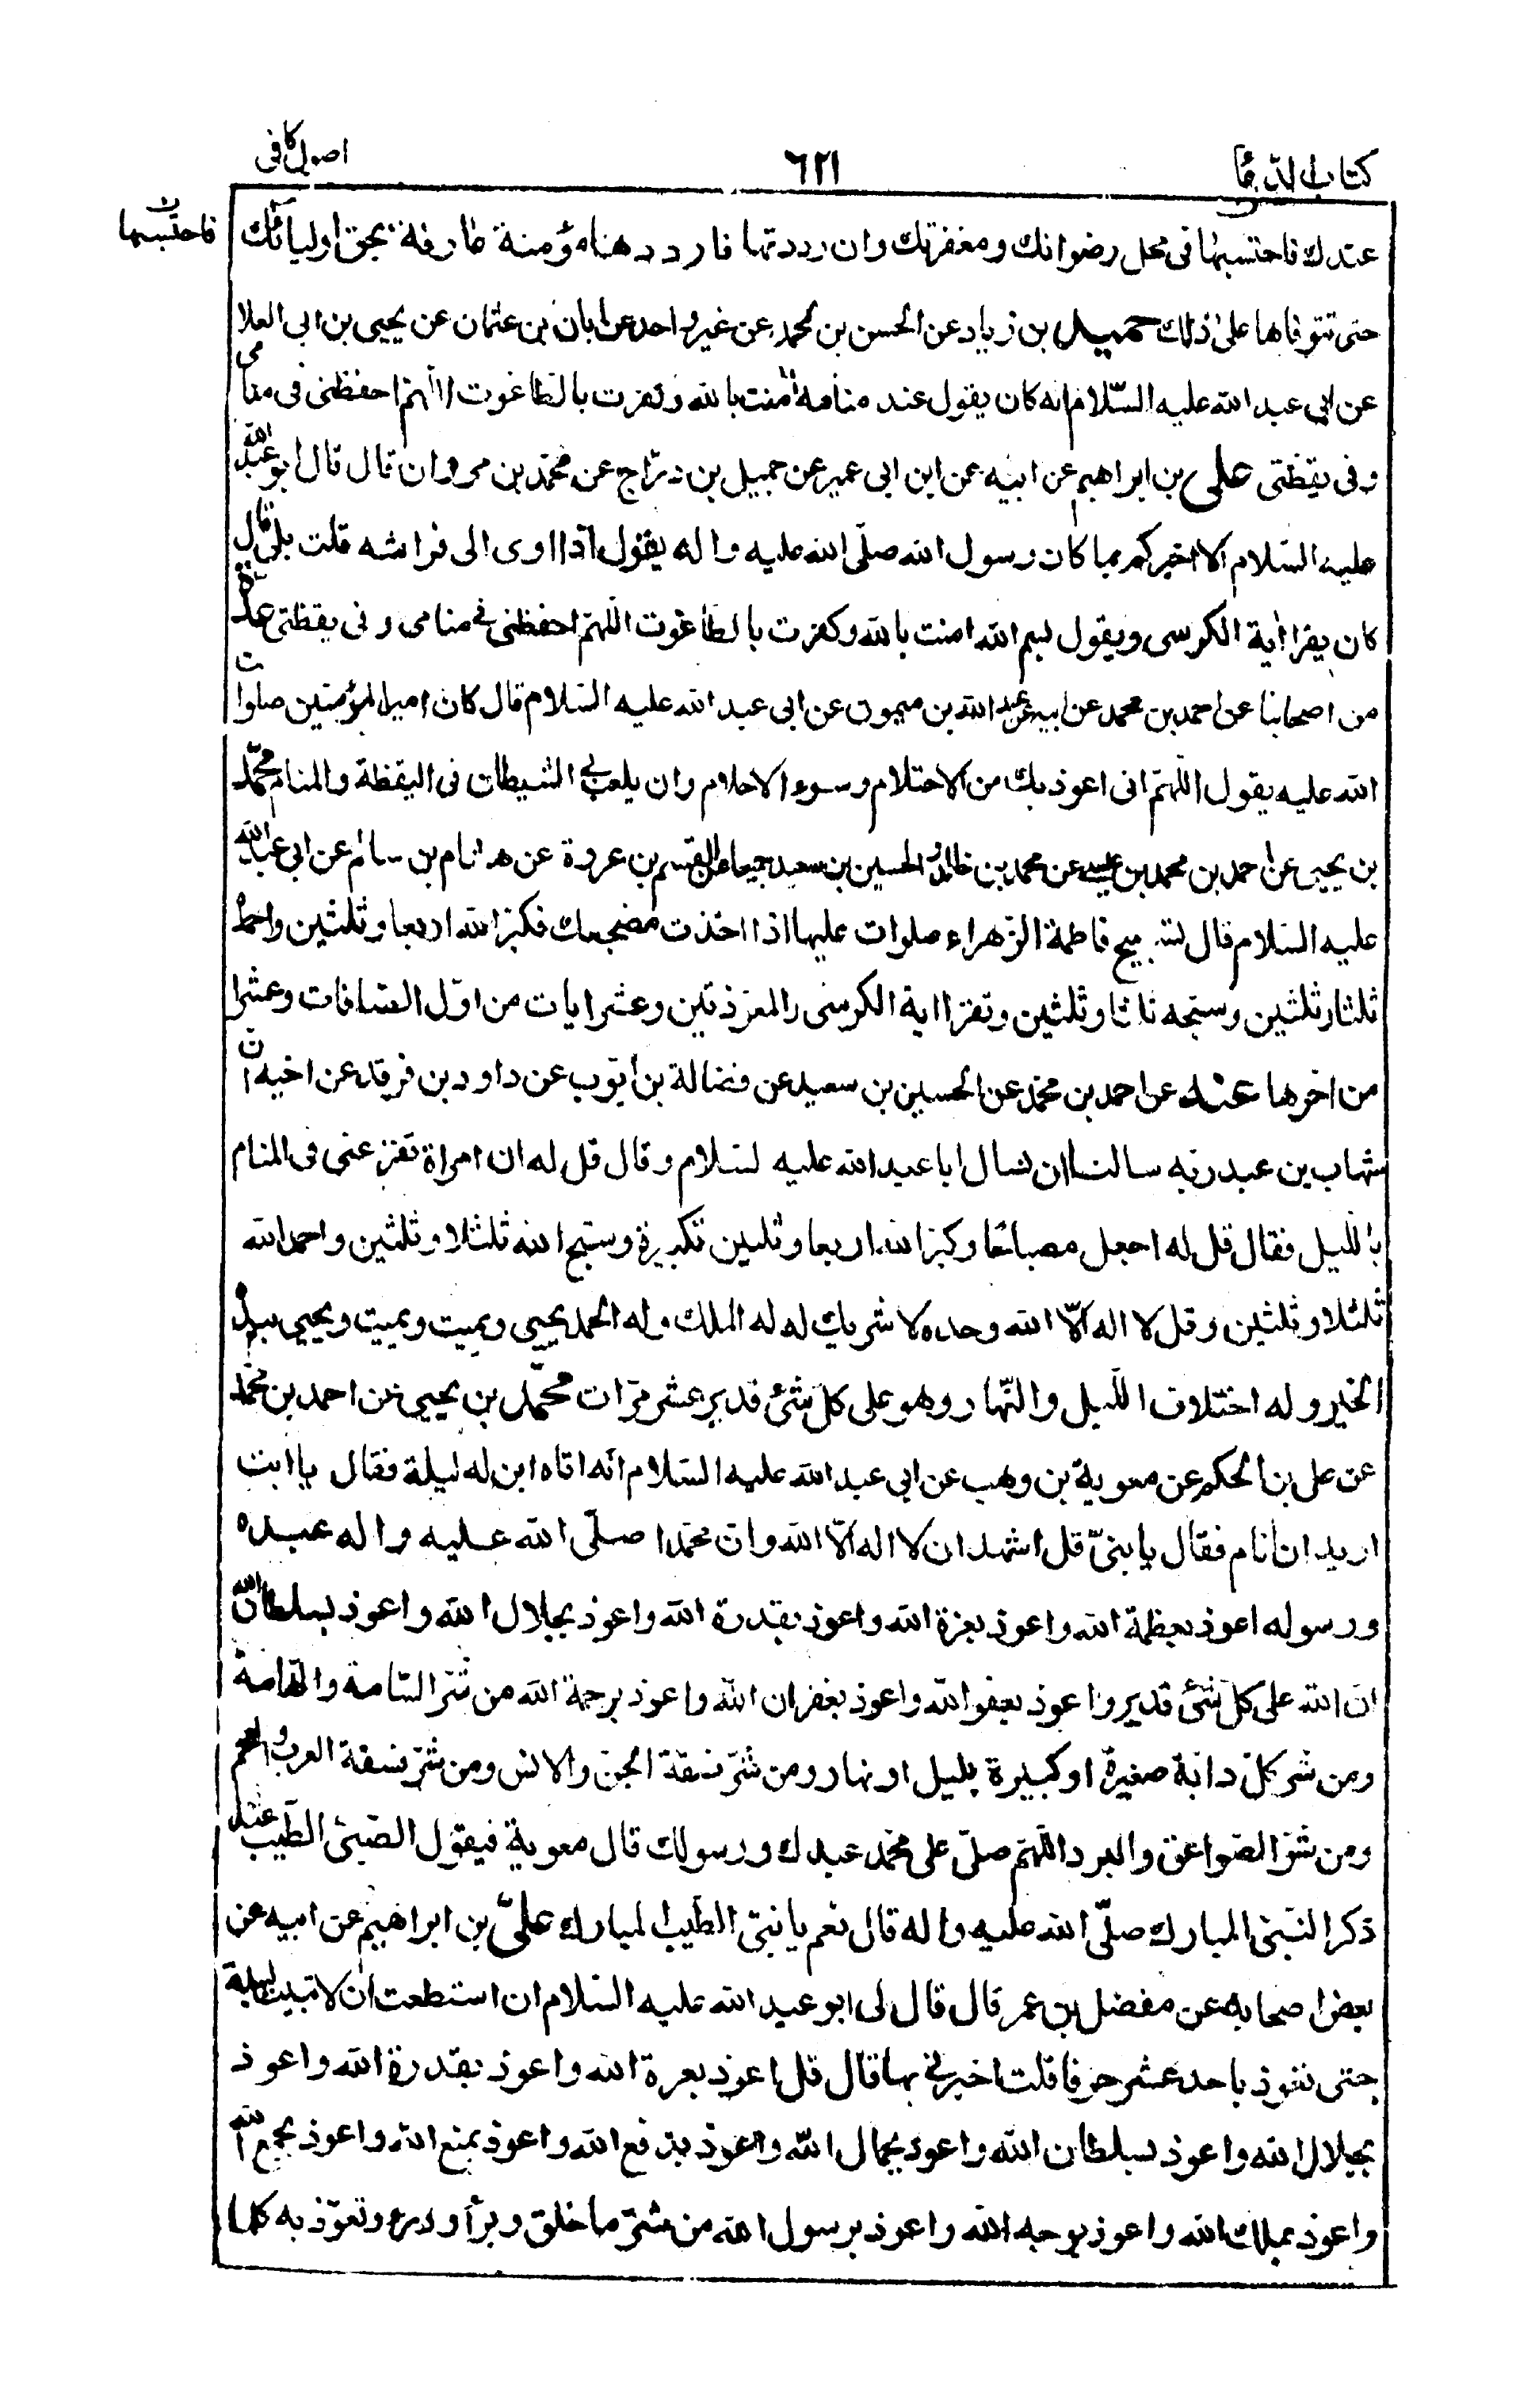 كتاب الدعا
٦٢١
اصول كافى
فاحتسبها
عندك فاحتسبها فى محل رضوانك و مغفرتك وان رددتها فارددهنا مؤمنة عارفة بحق اوليائك
حتى تتوفاها على ذلك حميد بن زياد عن الحسن بن محمد عن غير واحد عن ابان بن عثمان عن يحيى بن ابى العلا
عن ابى عبد الله عليه السّلام انه كان يقول عند منامه امنت بالله و كفرت بالطاغوت اللهم احفظنى فى منامى
وفى يقظتى على بن ابراهيم عن ابيه عن ابن ابى عمير عن جميل بن درّاج عن محمّد بن مروان قال قال ابو عبد الله
عليه السّلام الا اخبركم بما كان رسول الله صلّى الله عليه واله يقول اذا اوى الى فراشه قلت بلى قال
كان يقرا اية الكرسى ويقول بسم الله امنت بالله وكفرت بالطاغوت اللهمّ احفظنى فى منامى وفى يقظتى عدّة
من اصحابنا عن احمد بن محمد عن ابيه عن عبد الله بن ميمون عن ابى عبد الله عليه السّلام قال كان امير المؤمنين صلوات
الله عليه يقول اللّهمّ انى اعوذ بك من الاحتلام و سوء الاحلام وان يلعب بى الشيطان فى اليقظة والمنام محمّد
بن يحيى عن احمد بن محمد بن عيسى عن محمد بن خالد و الحسين بن سعيد جميعا عن القسم بن عروة عن هشام بن سالم عن ابى عبد الله
عليه السّلام قال تسبيح فاطمة الزهراء صلوات عليها اذا اخذت مضجعك فكبّر الله اربعا وثلثين واحمده
ثلثا وثلثين وسبّحه ثلثا وثلثين وتقرا اية الكرسى والمعوّذتين وعشر ايات من اوّل الصافات وعشرا
من اخرها عنه عن احمد بن محمّد عن الحسين بن سعيد عن فضالة بن ايّوب عن داود بن فرقد عن اخيه ان
شهاب بن عبد ربه سالنا ان نسال ابا عبد الله عليه لسّلام وقال قل له ان امراة تفزعنى فى المنام
باللّيل فقال قل له اجعل مصباحا وكبّر الله اربعا وثلثين تكبيرة وسبّح الله ثلثلا وثلثين واحمد الله
ثلثلا وثلثين وقل لا اله الّا الله وحده لا شريك له له الملك وله الحمد يحيى ويميت ويميت ويحيى بيده
الخير وله اختلاف اللّيل والنّهار وهو على كلّ شئ قدير عشر مرّات محمّد بن يحيى عن احمد بن محمّد
عن على بن الحكم عن معوية بن وهب عن ابى عبد الله عليه السّلام انّه اتاه ابن له ليلة فقال يا ابت
اريد ان انام فقال يا بنىّ قل اشهد ان لا اله الّا الله وان محمّدا صلّى الله عليه واله عبده
ورسوله اعوذ بعظمة الله واعوذ بعزة الله واعوذ بقدرة الله واعوذ بجلال الله واعوذ بسلطان الله
ان الله على كلّ شئ قدير واعوذ بعفو الله واعوذ بغفران الله واعوذ برحمة الله من شرّ السّامة والهامة
ومن شر كلّ دابّة صغيرة او كبيرة بليل او نهار ومن شرّ فسقة الجن والانس ومن شرّ فسقة العرب والعجم
ومن شرّ الصّواعق والبرد اللّهمّ صلّ على محمّد عبدك ورسولك قال معوية فيقول الصّبىّ الطّيب عند
ذكر النّبىّ المبارك صلّى الله عليه واله قال نعم يا بنىّ الطّيب المبارك علىّ بن ابراهيم عن ابيه عن
بعض اصحابه عن مفضل بن عمر قال قال لى ابو عبد الله عليه السّلام ان استطعت ان لا تبيت ليلة
حتى تعوّذ باحد عشر حرفا قلت اخبرنى بها قال قل اعوذ بعزة الله واعوذ بقدرة الله واعوذ
بجلال الله واعوذ بسلطان الله واعوذ بجمال الله واعوذ بدفع الله واعوذ بمنع الله واعوذ بجمع الله
واعوذ بملك الله واعوذ بوجه الله واعوذ برسول الله من شرّ ما خلق وبرأ وذرء وتعوّذ به كلما